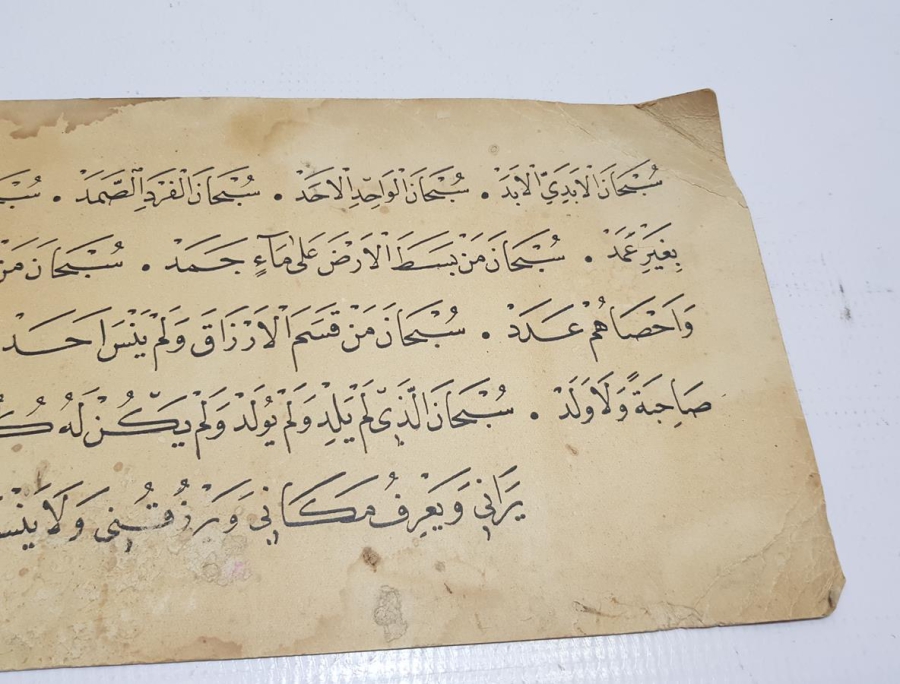 سُبْحَانَ الْاَبَدِيِّ الْاَبَدْ . سُبْحَانَ الْوَاحِدِ الْاَحَدْ . سُبْحَانَ الْفَرْدِ الصَّمَدْ .
بِغَيْرِ عَمَدْ . سُبْحَانَ مَنْ بَسَطَ الْاَرْضَ عَلٰى مَآءٍ جَمَدْ . سُبْحَانَ مَنْ
وَاَحْصَاهُمْ عَدَدْ . سُبْحَانَ مَنْ قَسَمَ الْاَرْزَاقَ وَلَمْ يَنْسَ اَحَدْ
صَاحِبَةً وَلَا وَلَدْ . سُبْحَانَ الَّذِى لَمْ يَلِدْ وَلَمْ يُولَدْ وَلَمْ يَكُنْ لَهُ
يَرَانِى وَيَعْرِفُ مَكَانِى وَيَرْزُقُنِى وَلَا